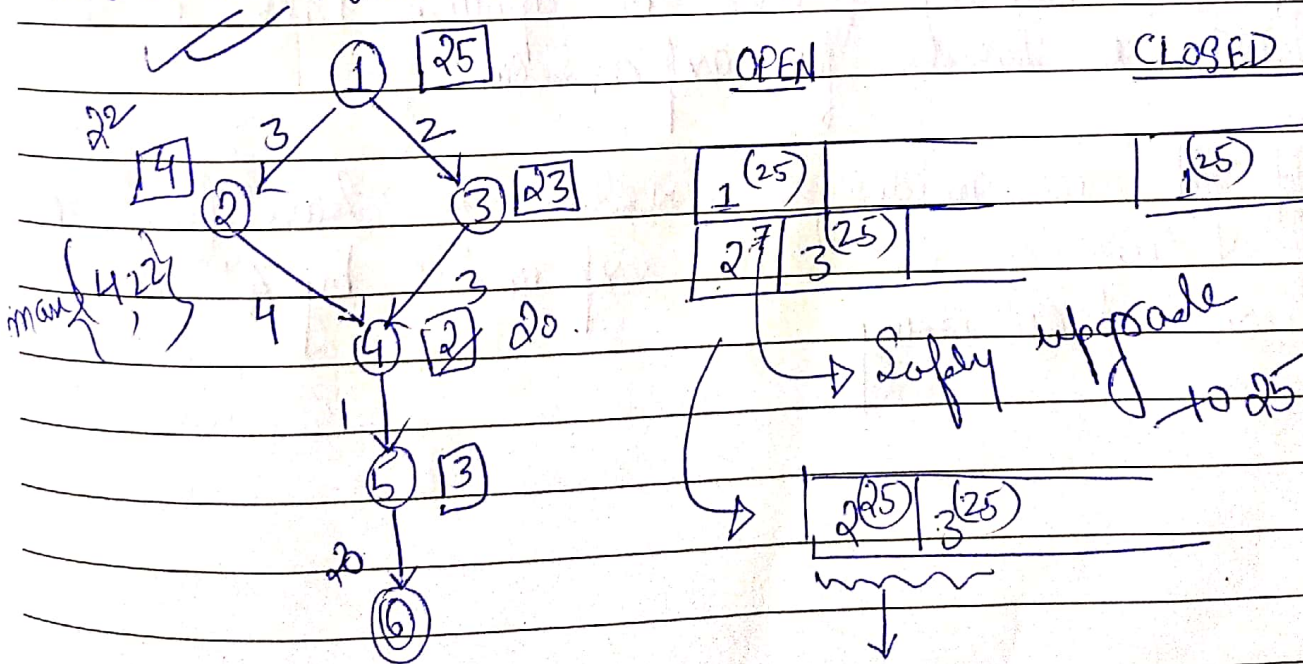 1 25 OPEN CLOSED
22 3 2
4 2 3 23 1(25) 1(25)
2 7 3(25)
max{4,22} 4 3
4 2 20. Safely upgrade to 25
1
5 3 2(25) 3(25)
20
6